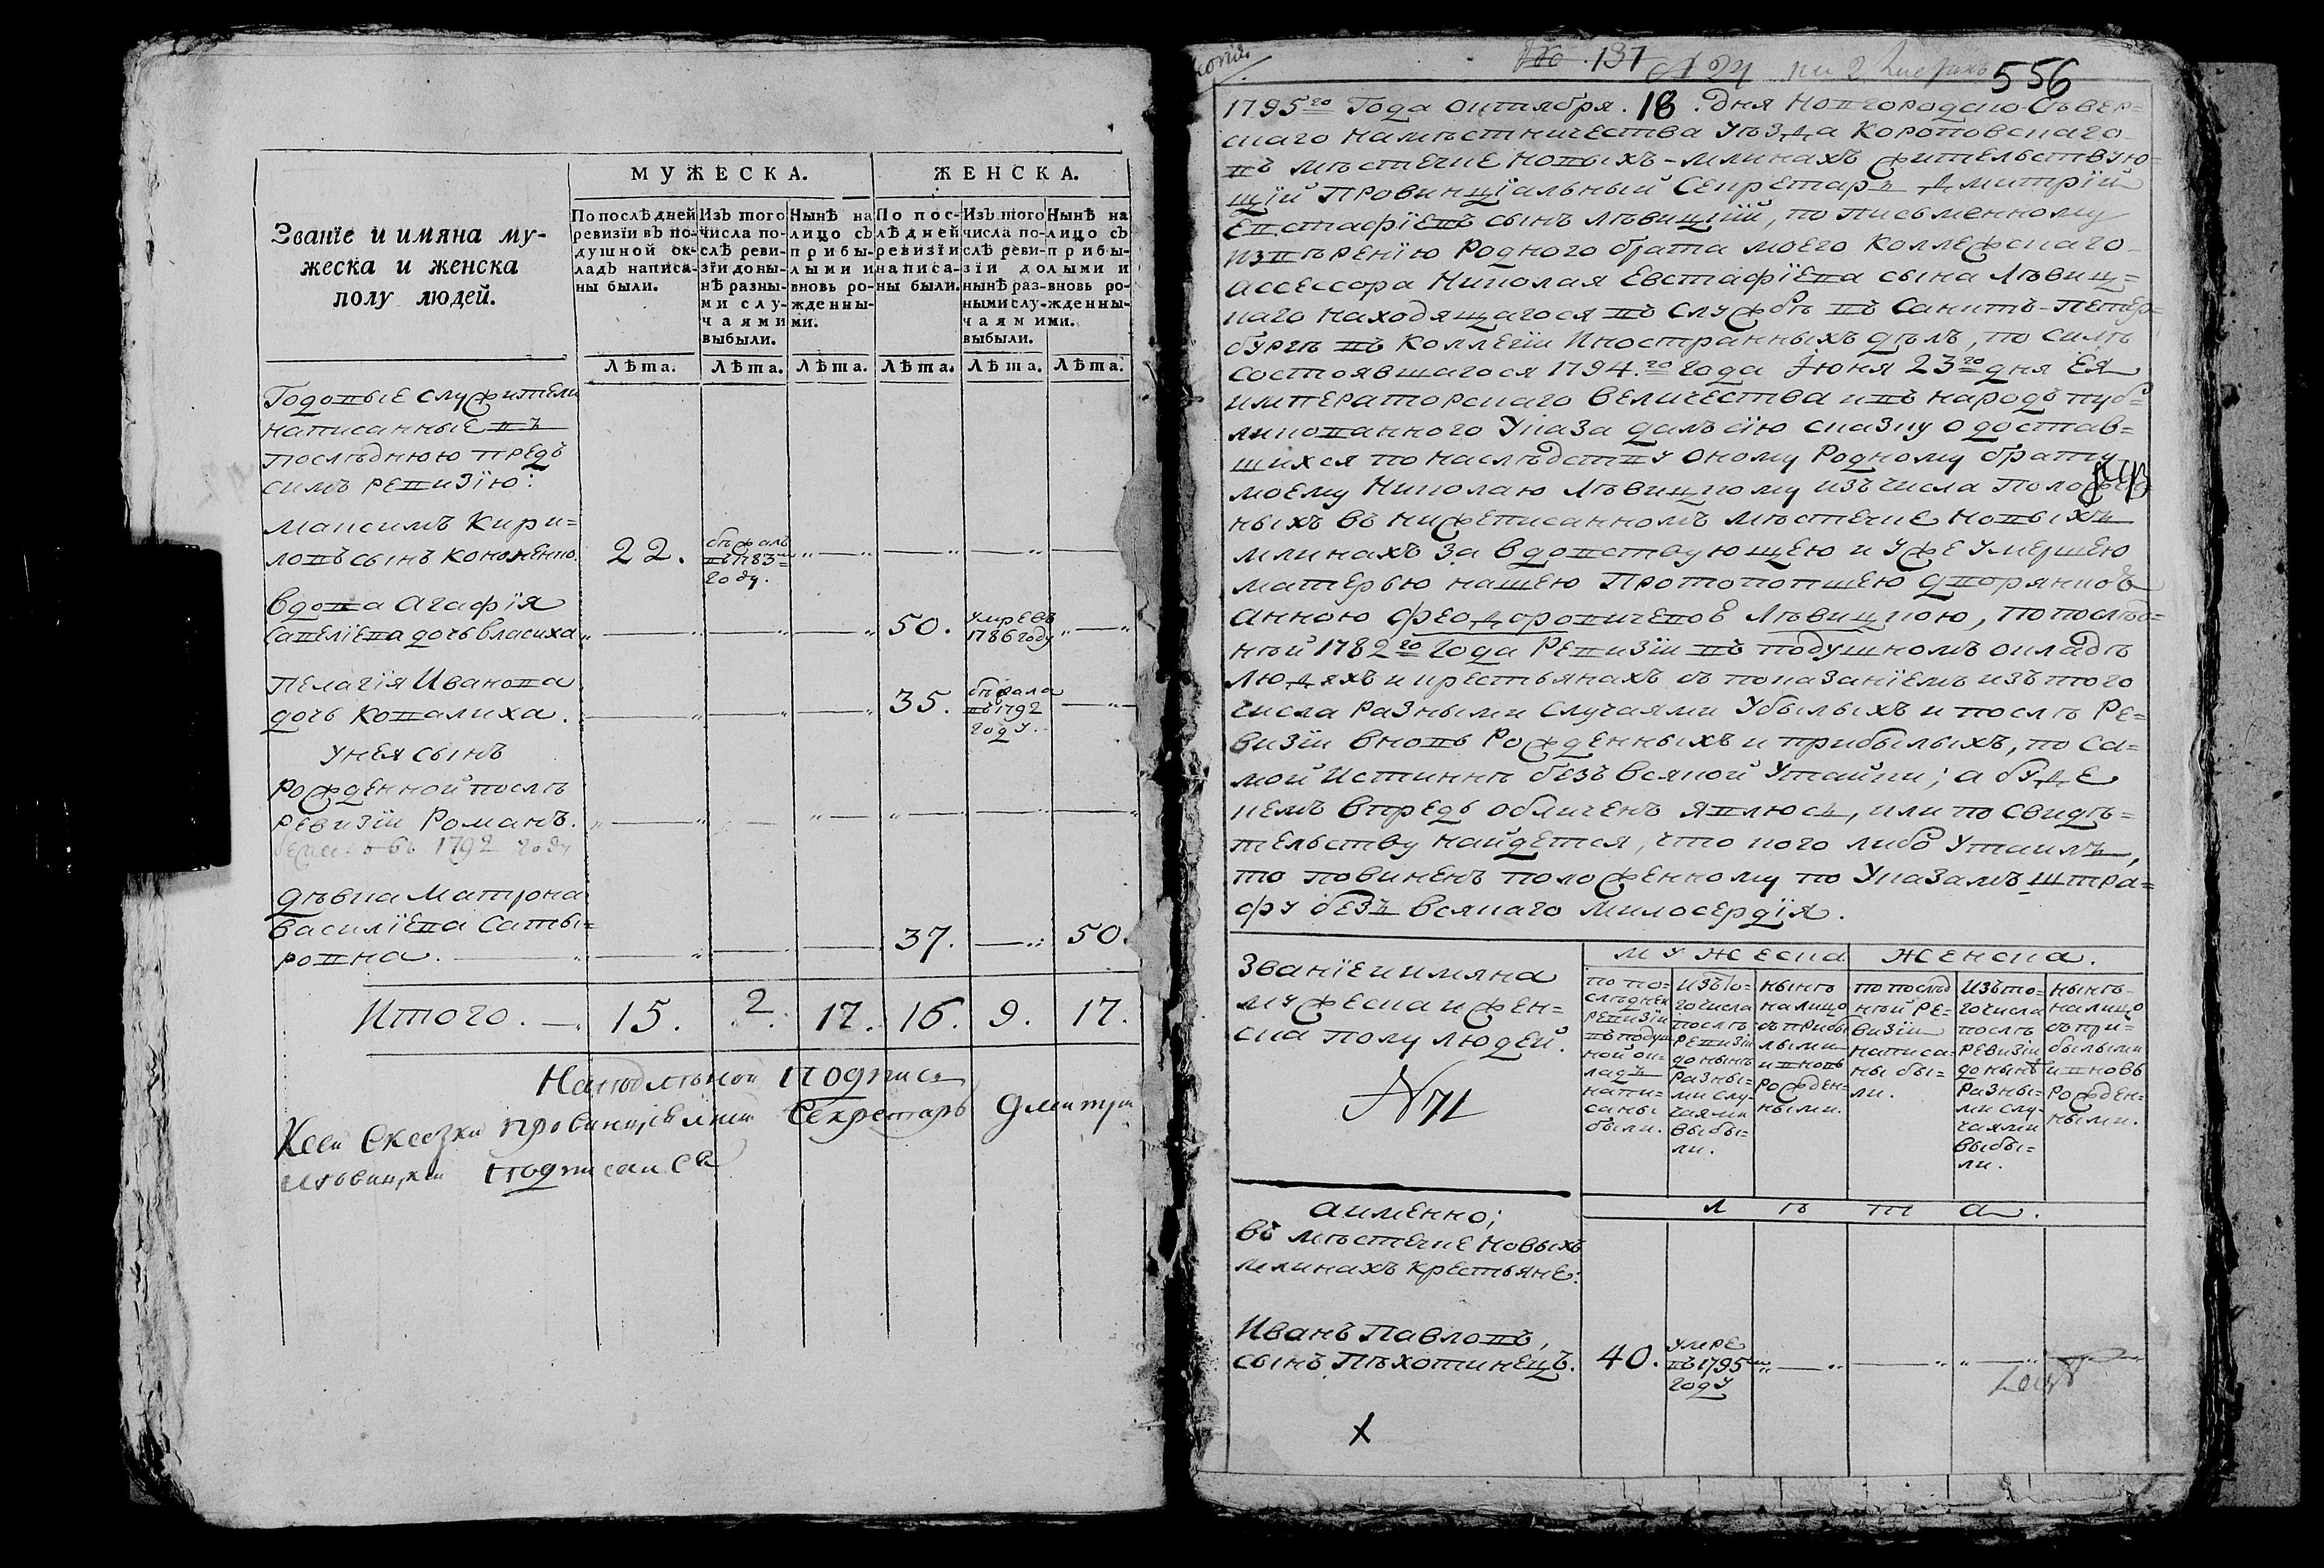 МУЖЕСКА.
ЖЕНСКА.
Званїе и имяна му-
жеска и женска
полу людей.
По послѣдней
ревизїи въ по-
душной ок-
ладъ написа-
ны были.
Изъ того
числа по-
слѣ реви-
зїи доны-
нѣ разны-
ми слу-
чаями
выбыли.
Нынѣ на
лицо съ
прибы-
лыми и
вновь ро-
жденны-
ми.
По пос-
лѣдней
ревизїи
написа-
ны были.
Изъ того
числа по-
слѣ реви-
зїи до
нынѣ раз-
ными слу-
чаями
выбыли.
Нынѣ на
лицо съ
прибы-
лыми и
вновь ро-
жденны-
ми.
Лѣта. Лѣта. Лѣта. Лѣта. Лѣта. Лѣта.
Годовые служители
написанные въ
последнюю предъ
симъ ревизїю:
Максимъ Кири=
ловъ сынъ Кононенко. 22. бѣжалъ
въ 1783
году.
Вдова Агафїя
Савелїева дочь Власиха 50. умре въ
1786 году
Пелагїя Иванова
дочь Ковалиха. 35. бѣжала
въ 1792
году.
У нея сынъ
рожденной послѣ
ревизїи Романъ.
въ 1792 году
Дѣвка Матрона
Василїева Саты=
ровна. 37. 50.
Итого. 15. 2. 17. 16. 9. 17.
подпись
Ксей скаски провинцїалний секретарь Дмитрий
Лѣвицкий подписался
копия.
137 № 24 на 2 листахъ 556
1795го Года октября .18. дня Новгородско-Сѣвер=
скаго намѣстничества уѣзда Короповскаго
въ мѣстечке Новыхъ-Млинахъ жительствую=
щїй провинцїальный секретарь Дмитрїй
Евстафїевъ сынъ Лѣвицкїй, по письменному
извѣренїю родного брата моего коллежскаго
ассессора Николая Евстафїева сына Лѣвиц=
каго находящагося въ службѣ въ Санктъ-Петер=
бургѣ въ коллегїи иностранныхъ дѣлъ, по силѣ
состоявшагося 1794.го года Июня 23го дня Ея
императорскаго величества и въ народъ пуб=
ликованного указа далъ сїю сказку о достав=
шихся по наслѣдству оному родному брату
моему Николаю Лѣвицкому изъ числа положен=
ныхъ въ нижеписанномъ мѣстечке Новыхъ
Млинахъ за вдовствующею и уже умершею
матерью нашею протопопшею дворянкою
Анною Феодоровичевою Лѣвицкою, по послѣд=
ней 1782го года ревизїи въ подушномъ окладѣ
людяхъ и крестьянахъ съ показанїемъ изъ того
числа разными случаями убылыхъ и послѣ ре=
визїи вновь рожденныхъ и прибылыхъ, по са=
мой истиннѣ безъ всякой утайки; а буде
кемъ впредь обличенъ явлюсь, или по свидѣ=
тельству найдется, что кого либо утаилъ,
то повиненъ положенному по указамъ штра=
фу безъ всякаго милосердїя.
Званїе и имяна
мужеска и жен=
ска полу людей.
№ 71
мужеска женска.
по по=
следней
ревизїи
въ подуш
ной ок=
ладъ
напи=
саны
были.
изъ то=
го числа
послѣ
ревизїи
до нынѣ
разны=
ми слу
чаями
выбы=
ли.
нынѣ
на лицо
съ прибы
лыми
и вновь
рожден=
ными.
по послѣд
ней ре=
визїи
написа=
ны бы=
ли.
изъ то=
го числа
послѣ
ревизїи
до нынѣ
разны=
ми слу
чаями
выбы=
ли.
нынѣ
на лицо
съ при=
былыми
и вновь
рожден=
ными.
лѣта.
а именно;
въ мѣстечке Новыхъ
Млинахъ крестьяне:
Иванъ Павловъ,
сынъ Пѣхотинецъ. 40. умре
въ 1795
году
х